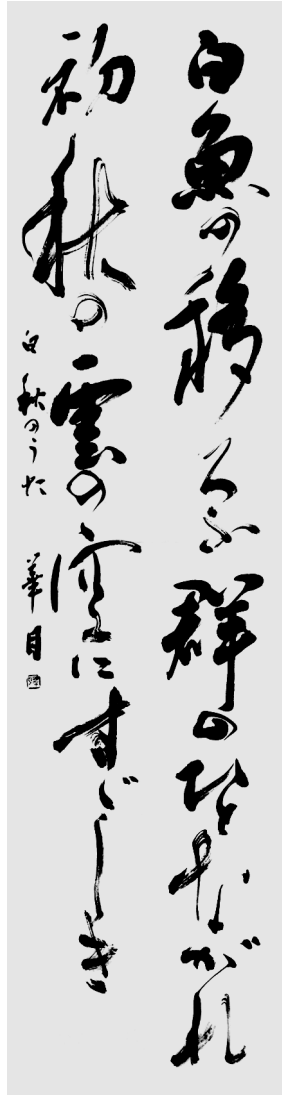 白魚の移ろふ群のひとながれ
初秋の雲の空にすがしき
白秋のうた 華月